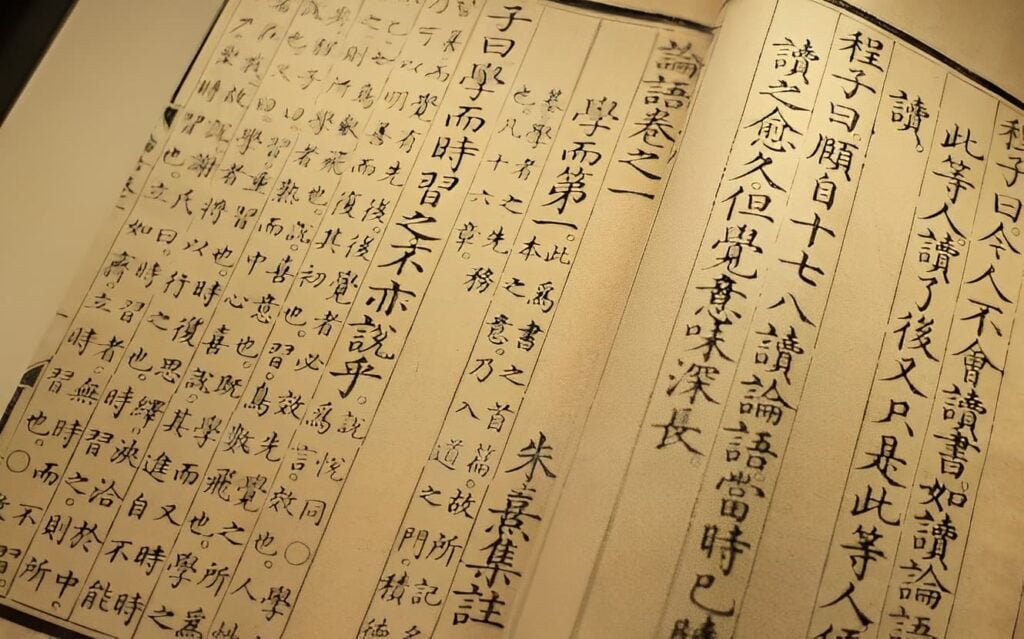 程子曰。今人不會讀書。如讀論語
此等人。讀了後又只是此等人。
讀。
程子曰。頤自十七八讀論語。當時已
讀之愈久。但覺意味深長。
論語卷之一
朱熹集註
學而第一。此爲書之首篇。故所記
本之意。乃入道之門。積
基。學者之先務
也。凡十六章。
子曰學而時習之不亦說乎。說悅同○學
爲言效也。人
有先後。後覺者必效先覺之所爲
以明善而復其初也。習。鳥數飛也。學之
鳥數飛也。說。喜意也。既學而又時
則所學者熟。而中心喜說。其進自不能
子曰。習。重習也。時復思繹。浹洽於中。
曰。學者將以行之也。時習之。則所
故說。謝氏曰。時習者。無時而不習。
時習也。立如齊。立時習也。○